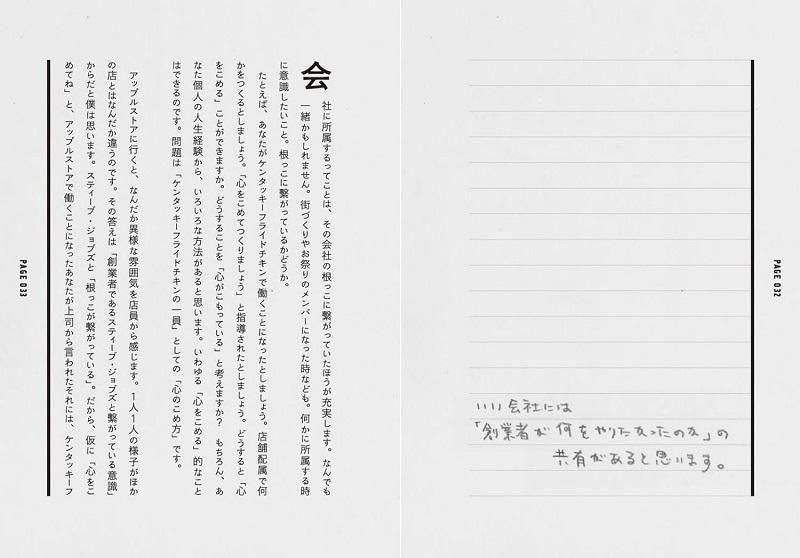 いい会社には
「創業者が何をやりたかったのか」の
共有があると思います。
PAGE 032
会社に所属するってことは、その会社の根っこに繋がっていたほうが充実します。なんでも
一緒かもしれません。街づくりやお祭りのメンバーになった時なども。何かに所属する時
に意識したいこと。根っこに繋がっているかどうか。
たとえば、あなたがケンタッキーフライドチキンで働くことになったとしましょう。店舗配属で何
かをつくるとしましょう。「心をこめてつくりましょう」と指導されたとしましょう。どうすると「心
をこめる」ことができますか。どうすることを「心がこもっている」と考えますか？　もちろん、あ
なた個人の人生経験から、いろいろな方法があると思います。いわゆる「心をこめる」的なこと
はできるのです。問題は「ケンタッキーフライドチキンの一員」としての「心のこめ方」です。
アップルストアに行くと、なんだか異様な雰囲気を店員から感じます。1人1人の様子がほか
の店とはなんだか違うのです。その答えは「創業者であるスティーブ・ジョブズと繋がっている意識」
からだと僕は思います。スティーブ・ジョブズと「根っこが繋がっている」。だから、仮に「心をこ
めてね」と、アップルストアで働くことになったあなたが上司から言われたそれには、ケンタッキーフ
PAGE 033